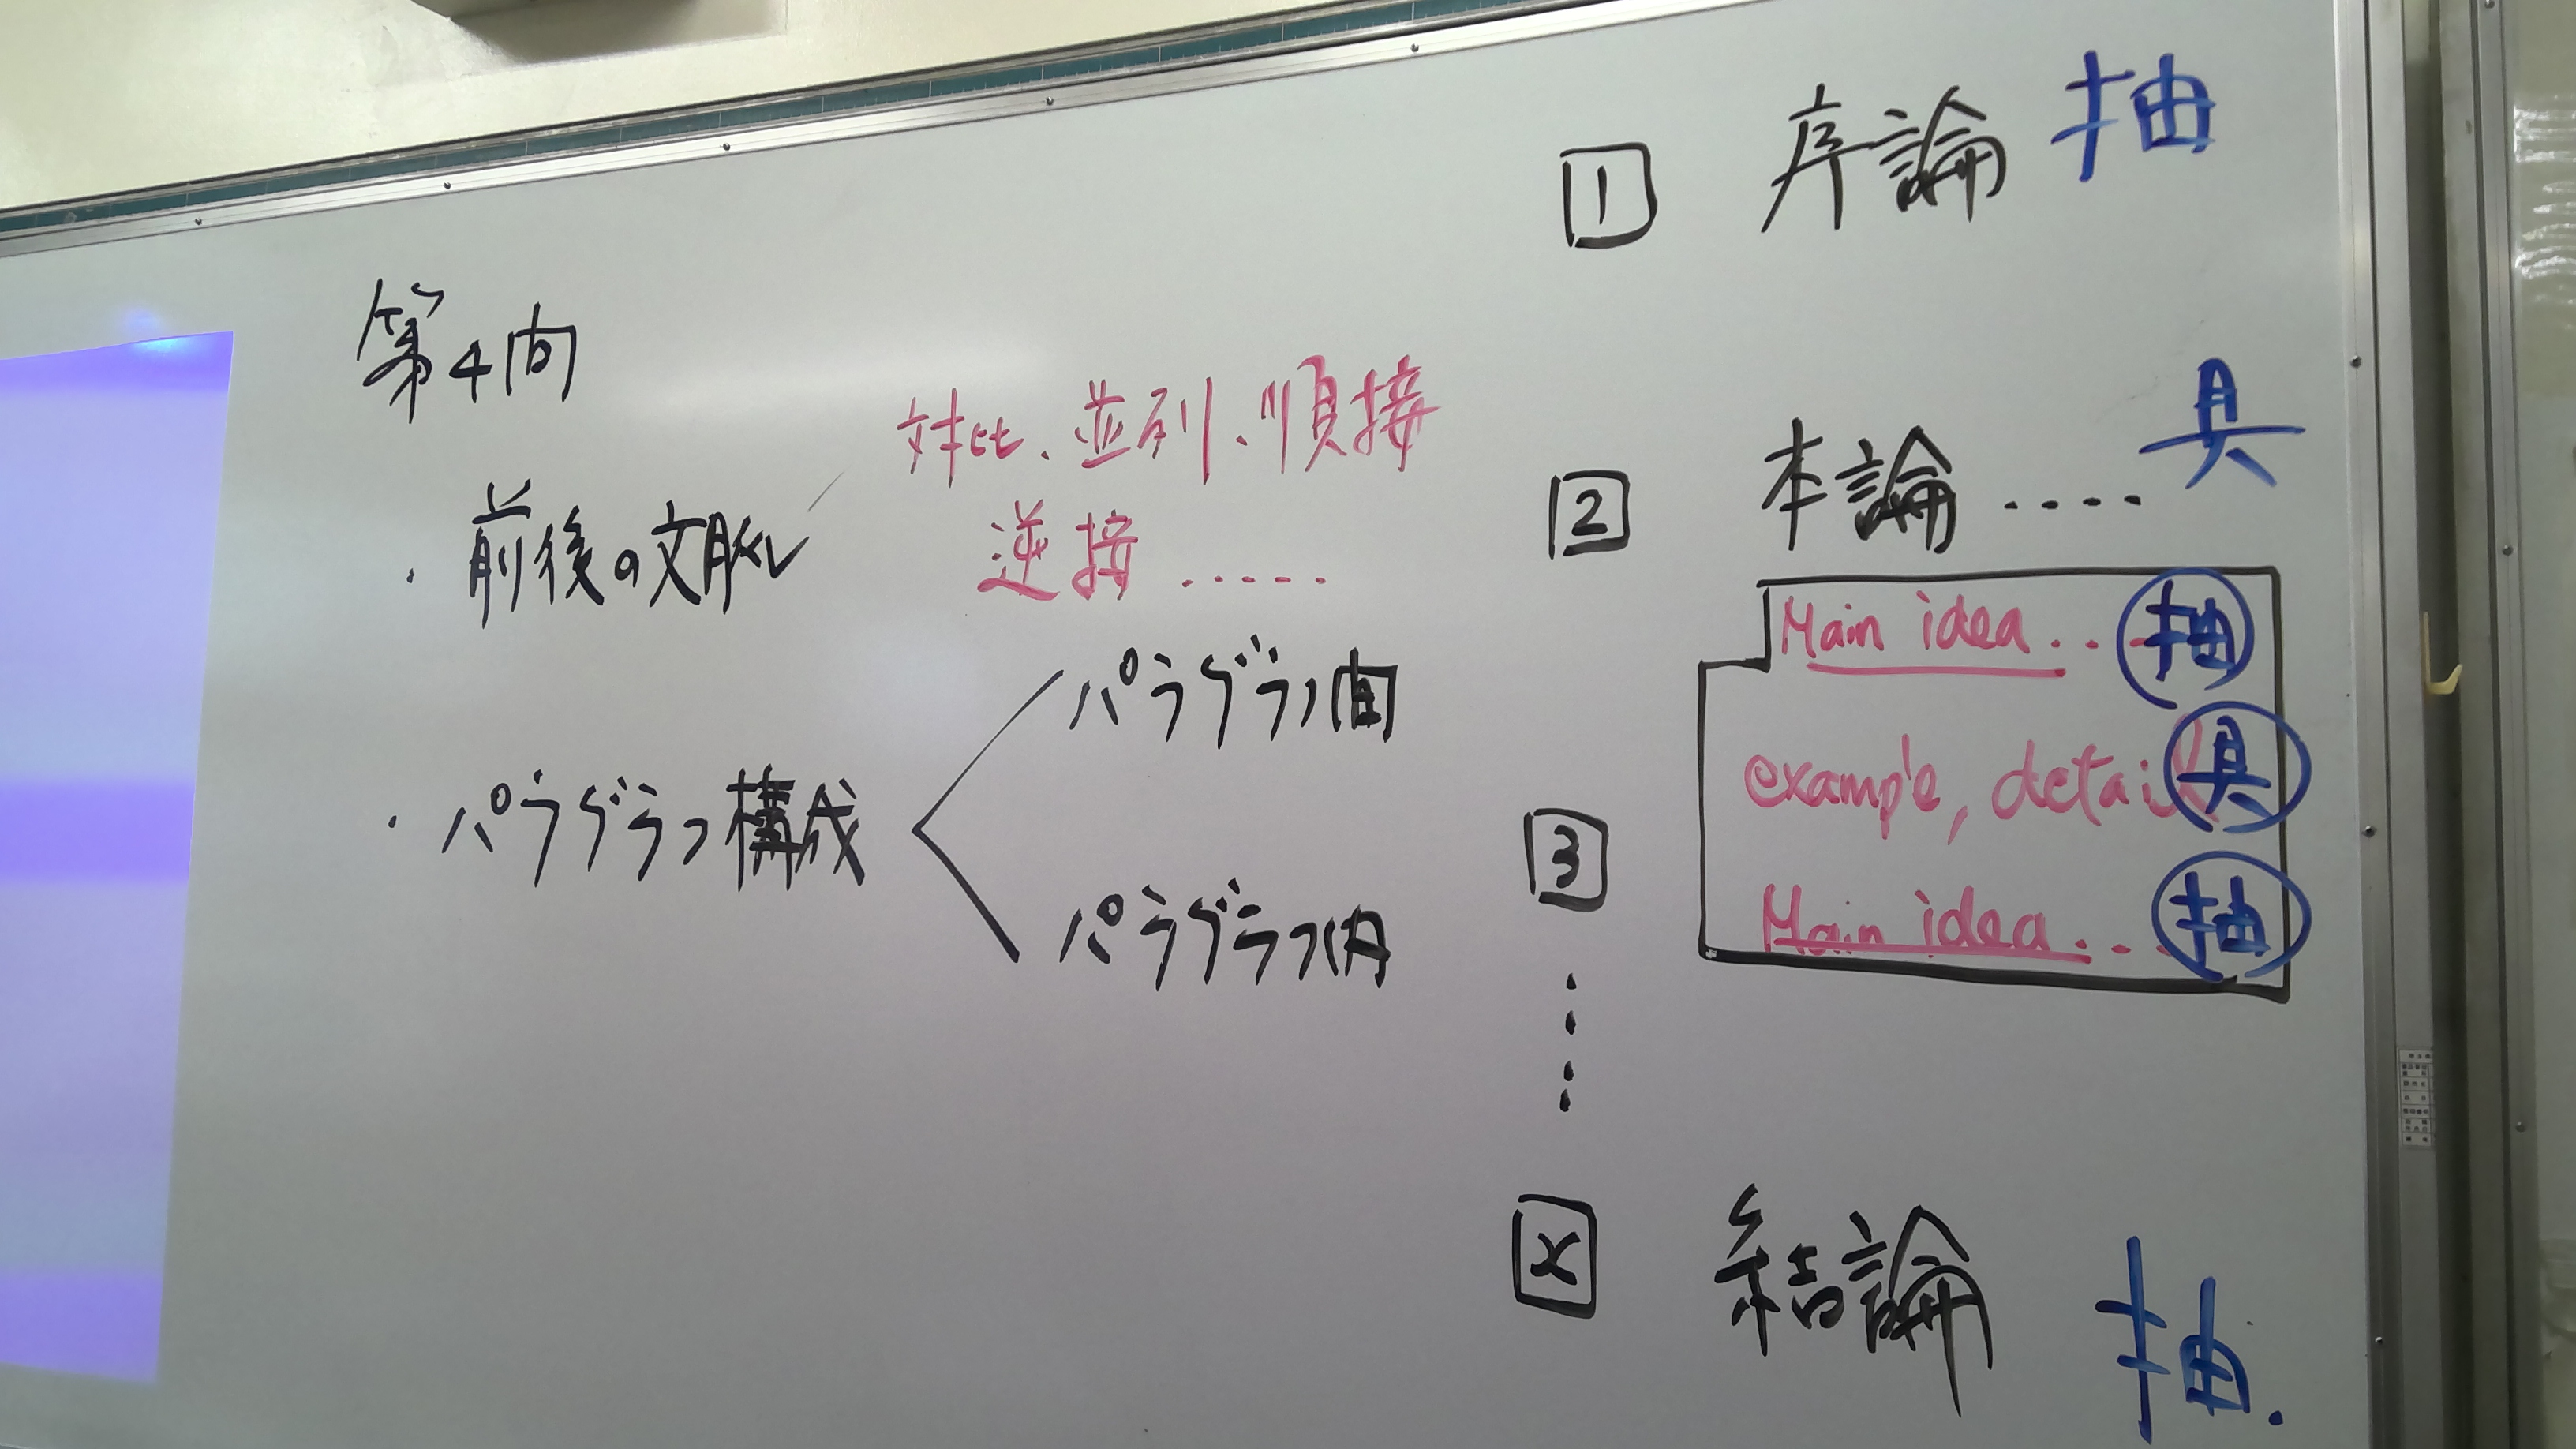 第4問
・前後の文脈
対比、並列、順接
逆接.....
・パラグラフ構成
パラグラフ間
パラグラフ内
1 序論 抽
2 本論.... 具
Main idea... 抽
example, detail 具
Main idea... 抽
3
x 結論 抽.